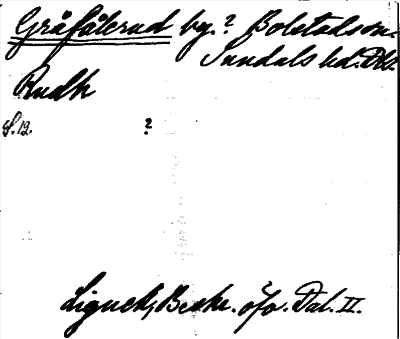 Gråfålerud by.? Bolstad sn.
Sundals hd. Dls.
Rudh
S. 12. ?
Lignell, Beskr. öfv. Dal. II.